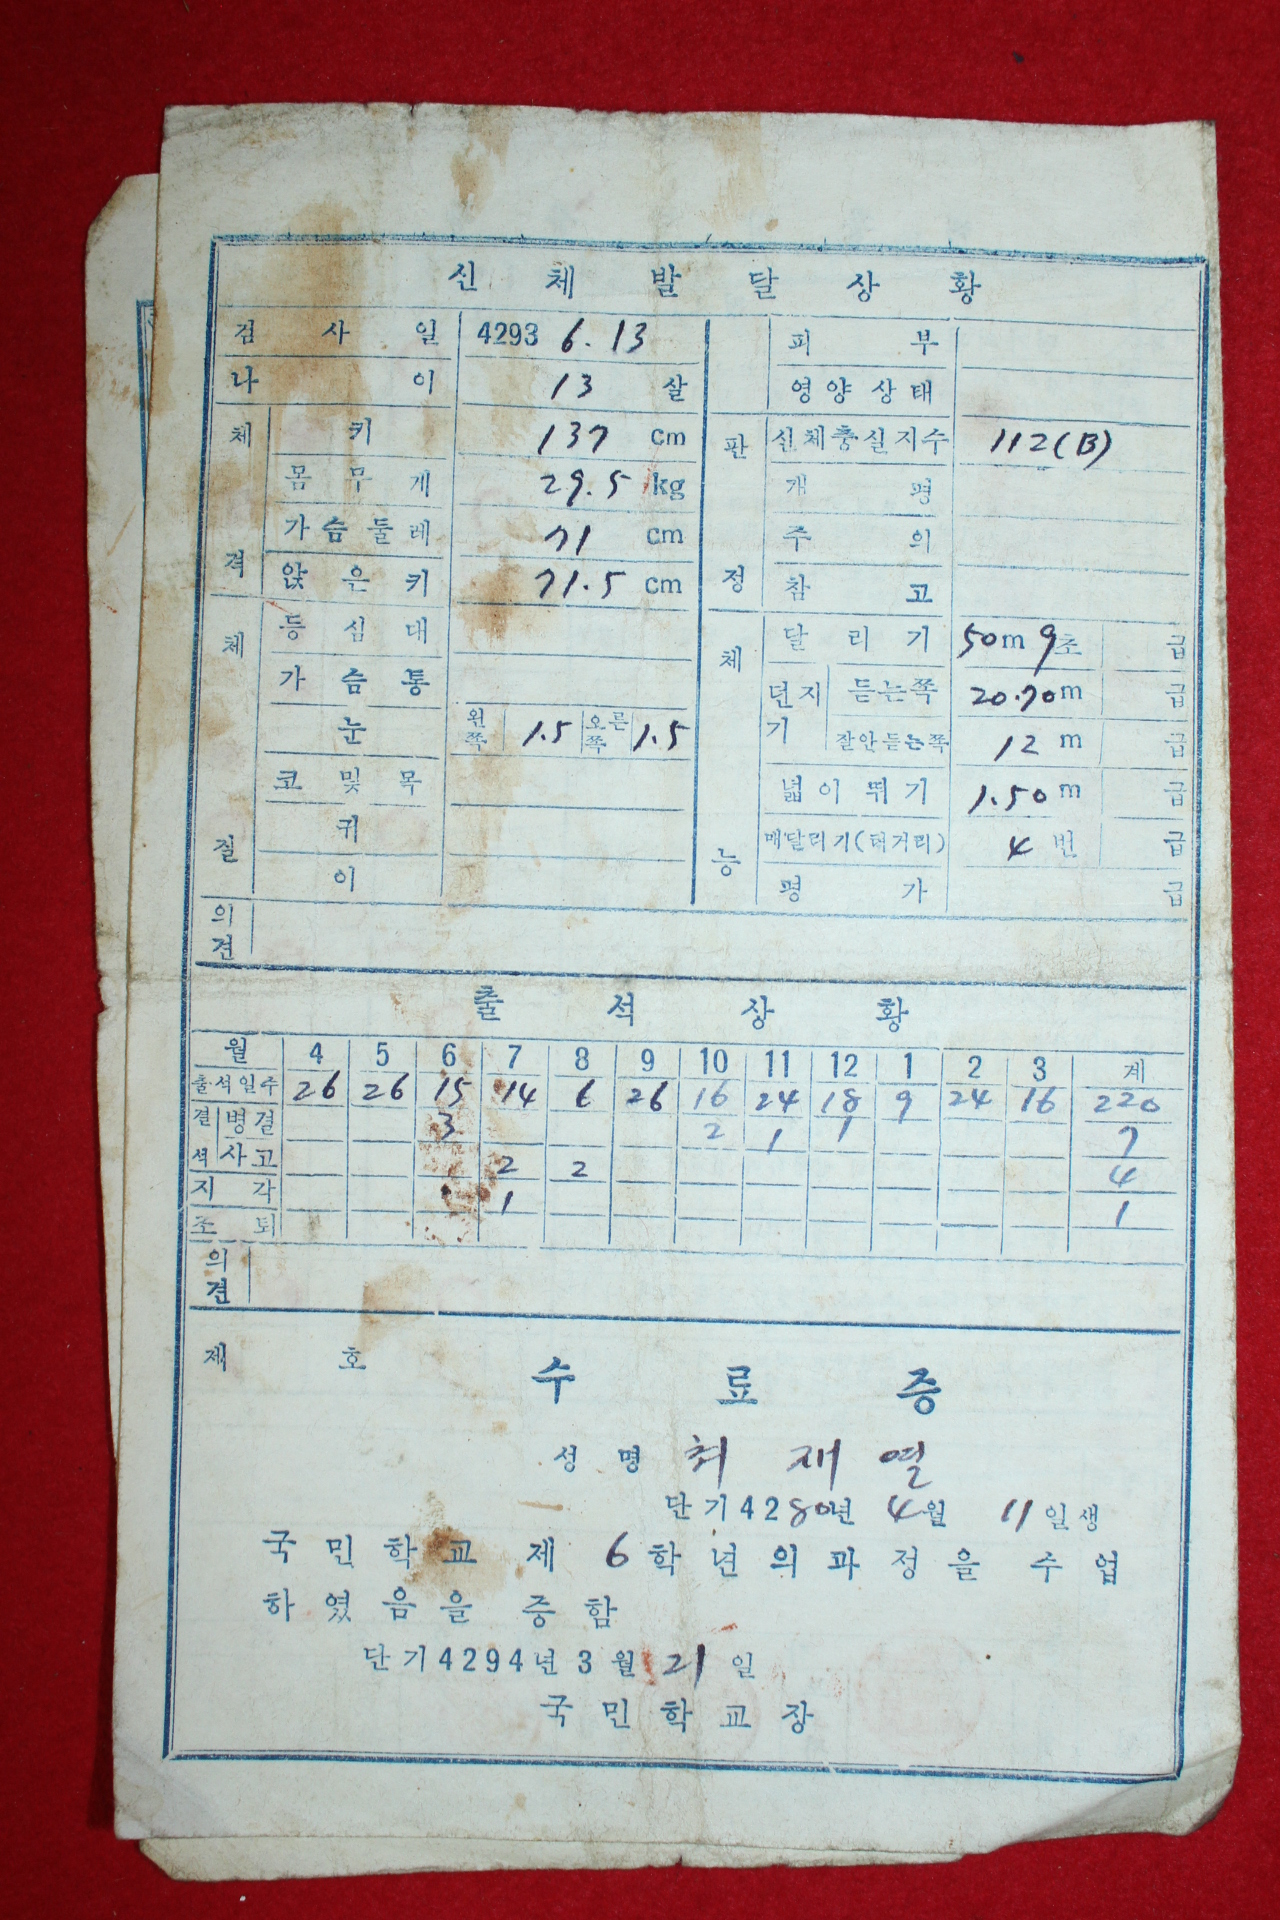 신체발달상황
검사일 4293 6.13 피부
나이 13 살 영양상태
체격 키 137 cm 판정 신체충실지수 112(B)
몸무게 29.5 kg 개평
가슴둘레 71 cm 주의
앉은키 71.5 cm 참고
체질 등심대 체능 달리기 50m 9초 급
가슴통 던지기 듣는쪽 20.70m 급
눈 왼쪽 1.5 오른쪽 1.5 잘안듣는쪽 12 m 급
코및목 넓이뛰기 1.50 m 급
귀 매달리기(턱거리) 4 번 급
이 평가 급
의견
출석상황
월 4 5 6 7 8 9 10 11 12 1 2 3 계
출석일수 26 26 15 14 6 26 16 24 18 9 24 16 220
결석 병결 3 2 1 1 7
사고 2 2 4
지각 1 1
조퇴
의견
제 호 수료증
성명 최재열
단기4280년 4월 11일생
국민학교 제 6학년의과정을 수업
하였음을 증함
단기4294년 3월 21일
국민학교장